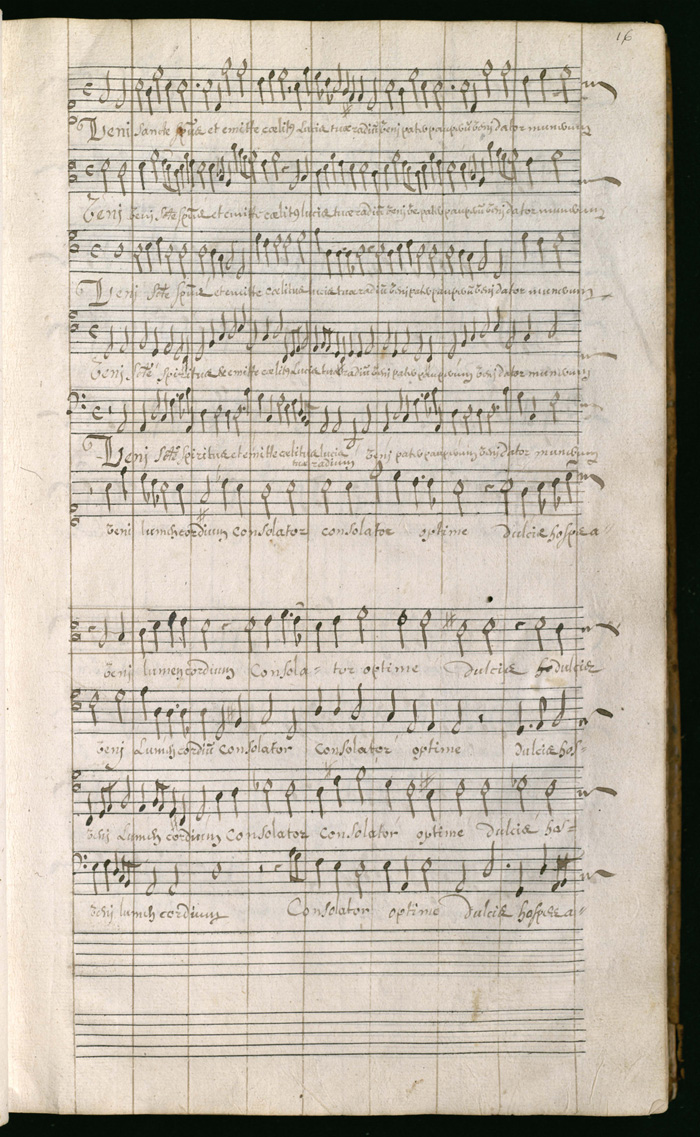 16
Veni Sancte Sp̃us et emitte cœlitꝰ Lucis tuæ radiũ Veni pater paupeꝝũ Veni dator munerum
Veni Veni Scte Sp̃us et emitte cœlitꝰ lucis tuæ radiũ Veni Ve pater paupeꝝũ Veni dator munerum
Veni Scte Sp̃us et emitte cœlitus lucis tuæ radiũ Veni pater paupeꝝũ Veni dator munerum
Veni Scte Spiritus et emitte cœlitꝰ Lucis tuæ radiũ Veni pater pauperum Veni dator munerum
Veni Scts Spiritus et emitte cœlitus lucis Veni pater pauperum Veni dator munerum
tuæ radium
Veni lumen cordium Consolator consolator optime Dulcis hospes a
Veni lumen cordium Consola- tor optime Dulcis h Dulcis
Veni Lumen cordiũ Consolator Consolator optime Dulcis hos=
Veni Lumen cordium Consolator Consolator optime Dulcis hos=
Veni lumen cordium Consolator optime Dulcis hospes a=